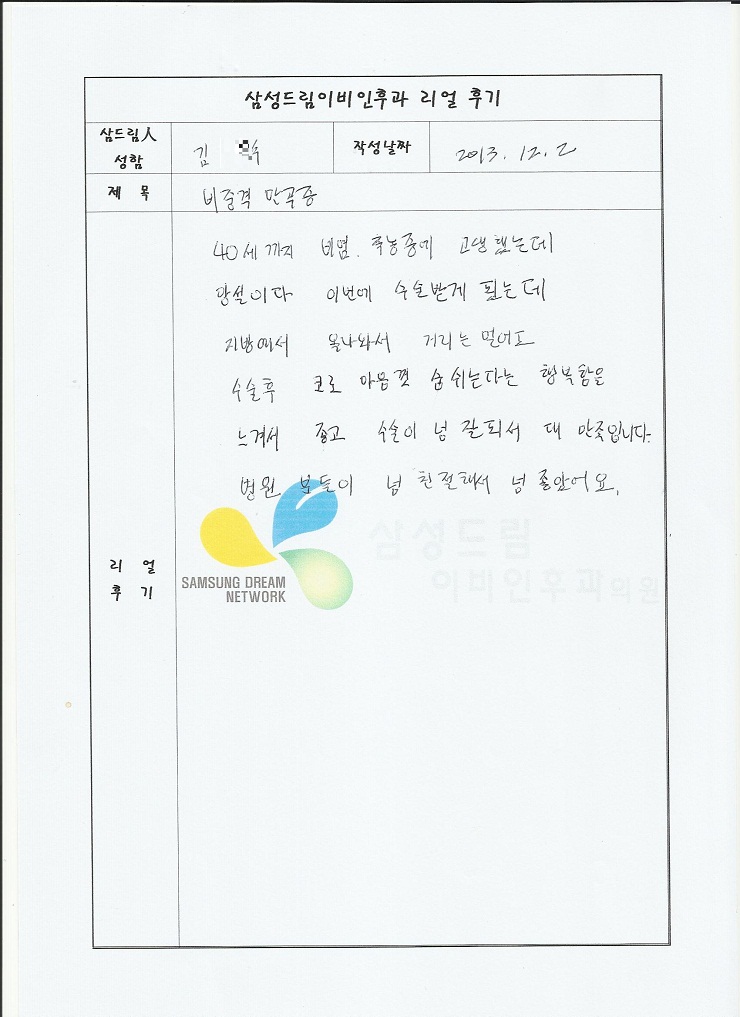 삼성드림이비인후과 리얼 후기
삼드림人 성함 김 수 작성날짜 2013. 12. 2
제 목 비중격 만곡증
40세 까지 비염. 축농증에 고생했는데
망설이다 이번에 수술받게 됬는데
지방에서 올나와서 거리는 멀어도
수술후 코로 마음껏 숨쉬는다는 행복함을
느껴서 좋고 수술이 넘 잘되서 대 만족입니다.
병원 분들이 넘 친절해서 넘 좋았어요.
리 얼
후 기
SAMSUNG DREAM
NETWORK
삼성드림
이비인후과의원